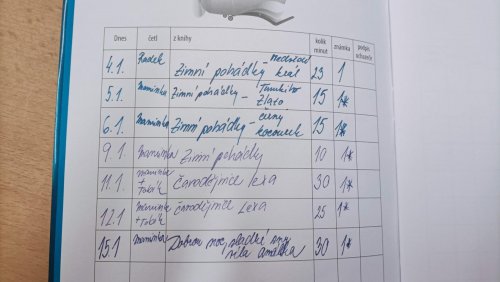 Dnes četl z knihy kolik minut známka podpis
4.1. Radek Zimní pohádky - král 23 1
5.1. maminka Zimní pohádky - Zlato 15 1*
6.1. maminka Zimní pohádky - černý kocourek 15 1*
9.1. maminka Zimní pohádky 10 1*
11.1. maminka + Čarodějnice Lexa 30 1*
12.1 maminka + Čarodějnice Lexa 25 1*
15.1 maminka Dobrou noc sladké sny 30 1*